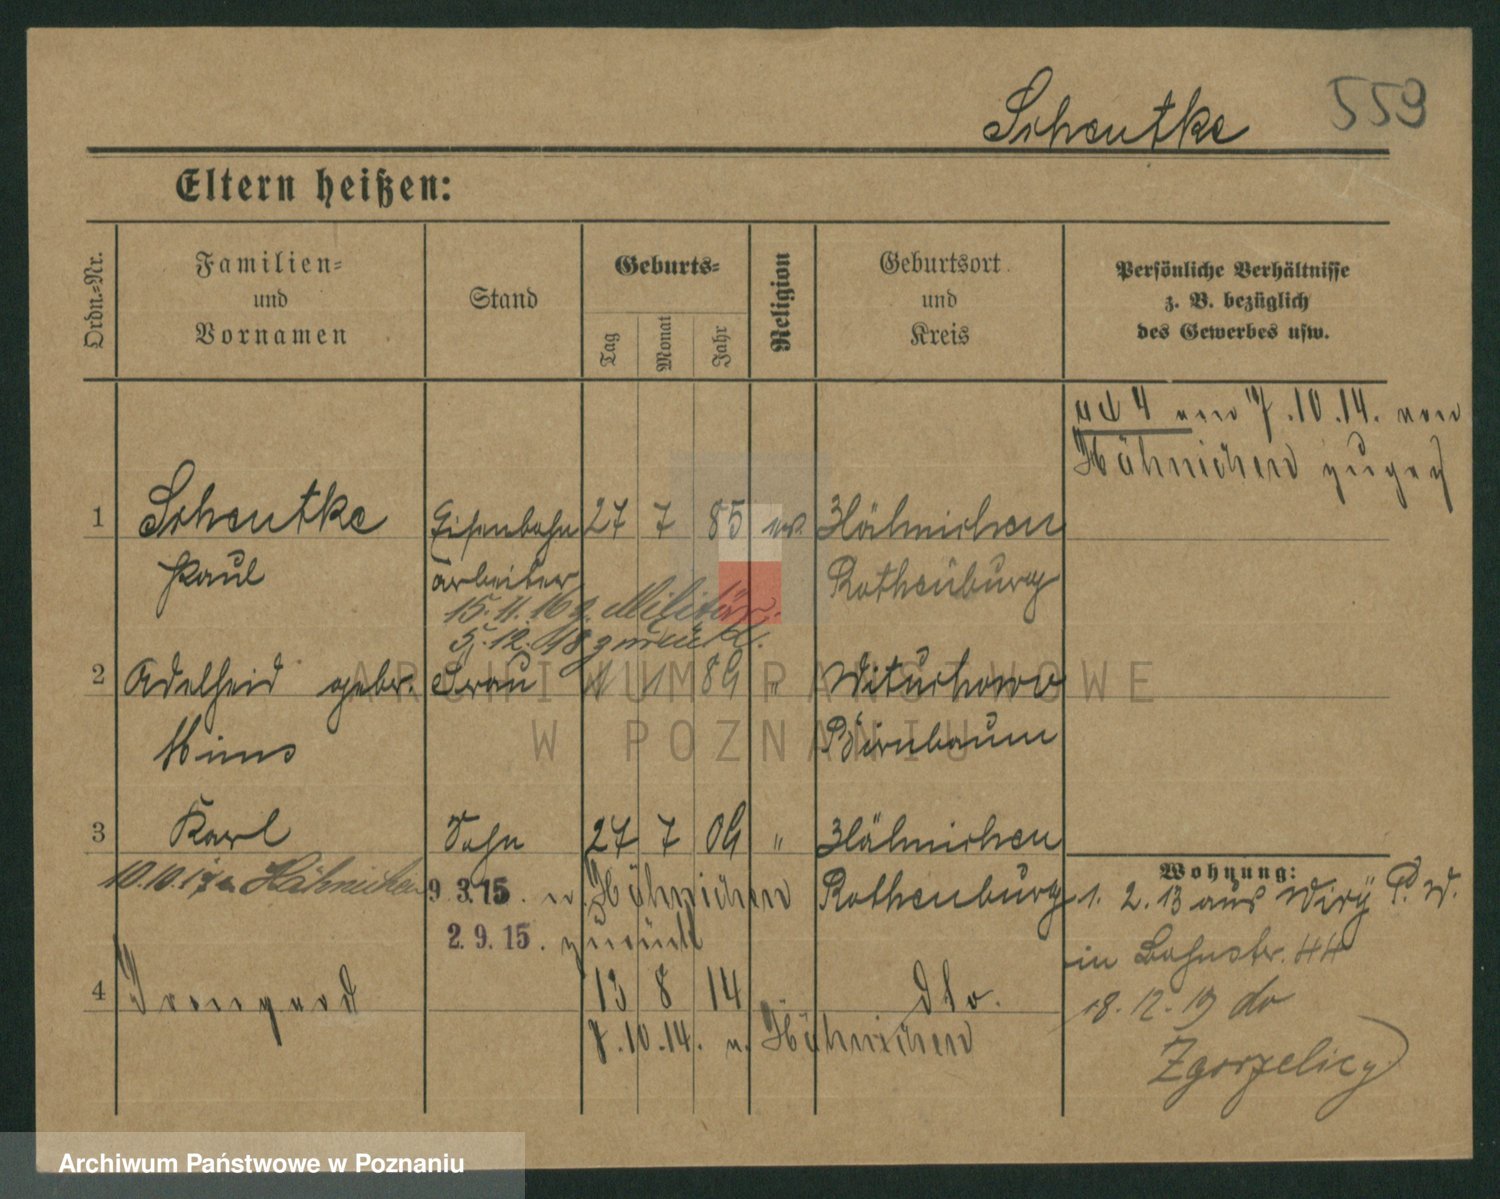 Schentke 559
Eltern heißen:
Ordn.-Nr.
Familien-
und
Vornamen
Stand
Geburts-
Tag
Monat
Jahr
Religion
Geburtsort
und
Kreis
Persönliche Verhältnisse
z. B. bezüglich
des Gewerbes usw.
ad 4 am 7.10.14. von
Hähnichen
1 Schentke Eisenbahn 27 7 85 ev. Hähnichen
Paul arbeiter Rothenburg
15.11.16 z. Militär
5.12.18 zurück.
2 Adelheid gebr. Frau 1 89 "
Birnbaum
3 Karl Sohn 27 7 09 " Hähnichen
10.10.17 n Hähnichen 9.3.15. n. Hähnichen Rothenburg
2.9.15. zurück
Wohnung:
1.2.13 aus Wiry P. W.
in Bahnstr. 44
4 13 8 14 dto.
7.10.14. n. Hähnichen
18.12.19 do
Zgorzelicy
ARCHIWUM PAŃSTWOWE
W POZNANIU
Archiwum Państwowe w Poznaniu